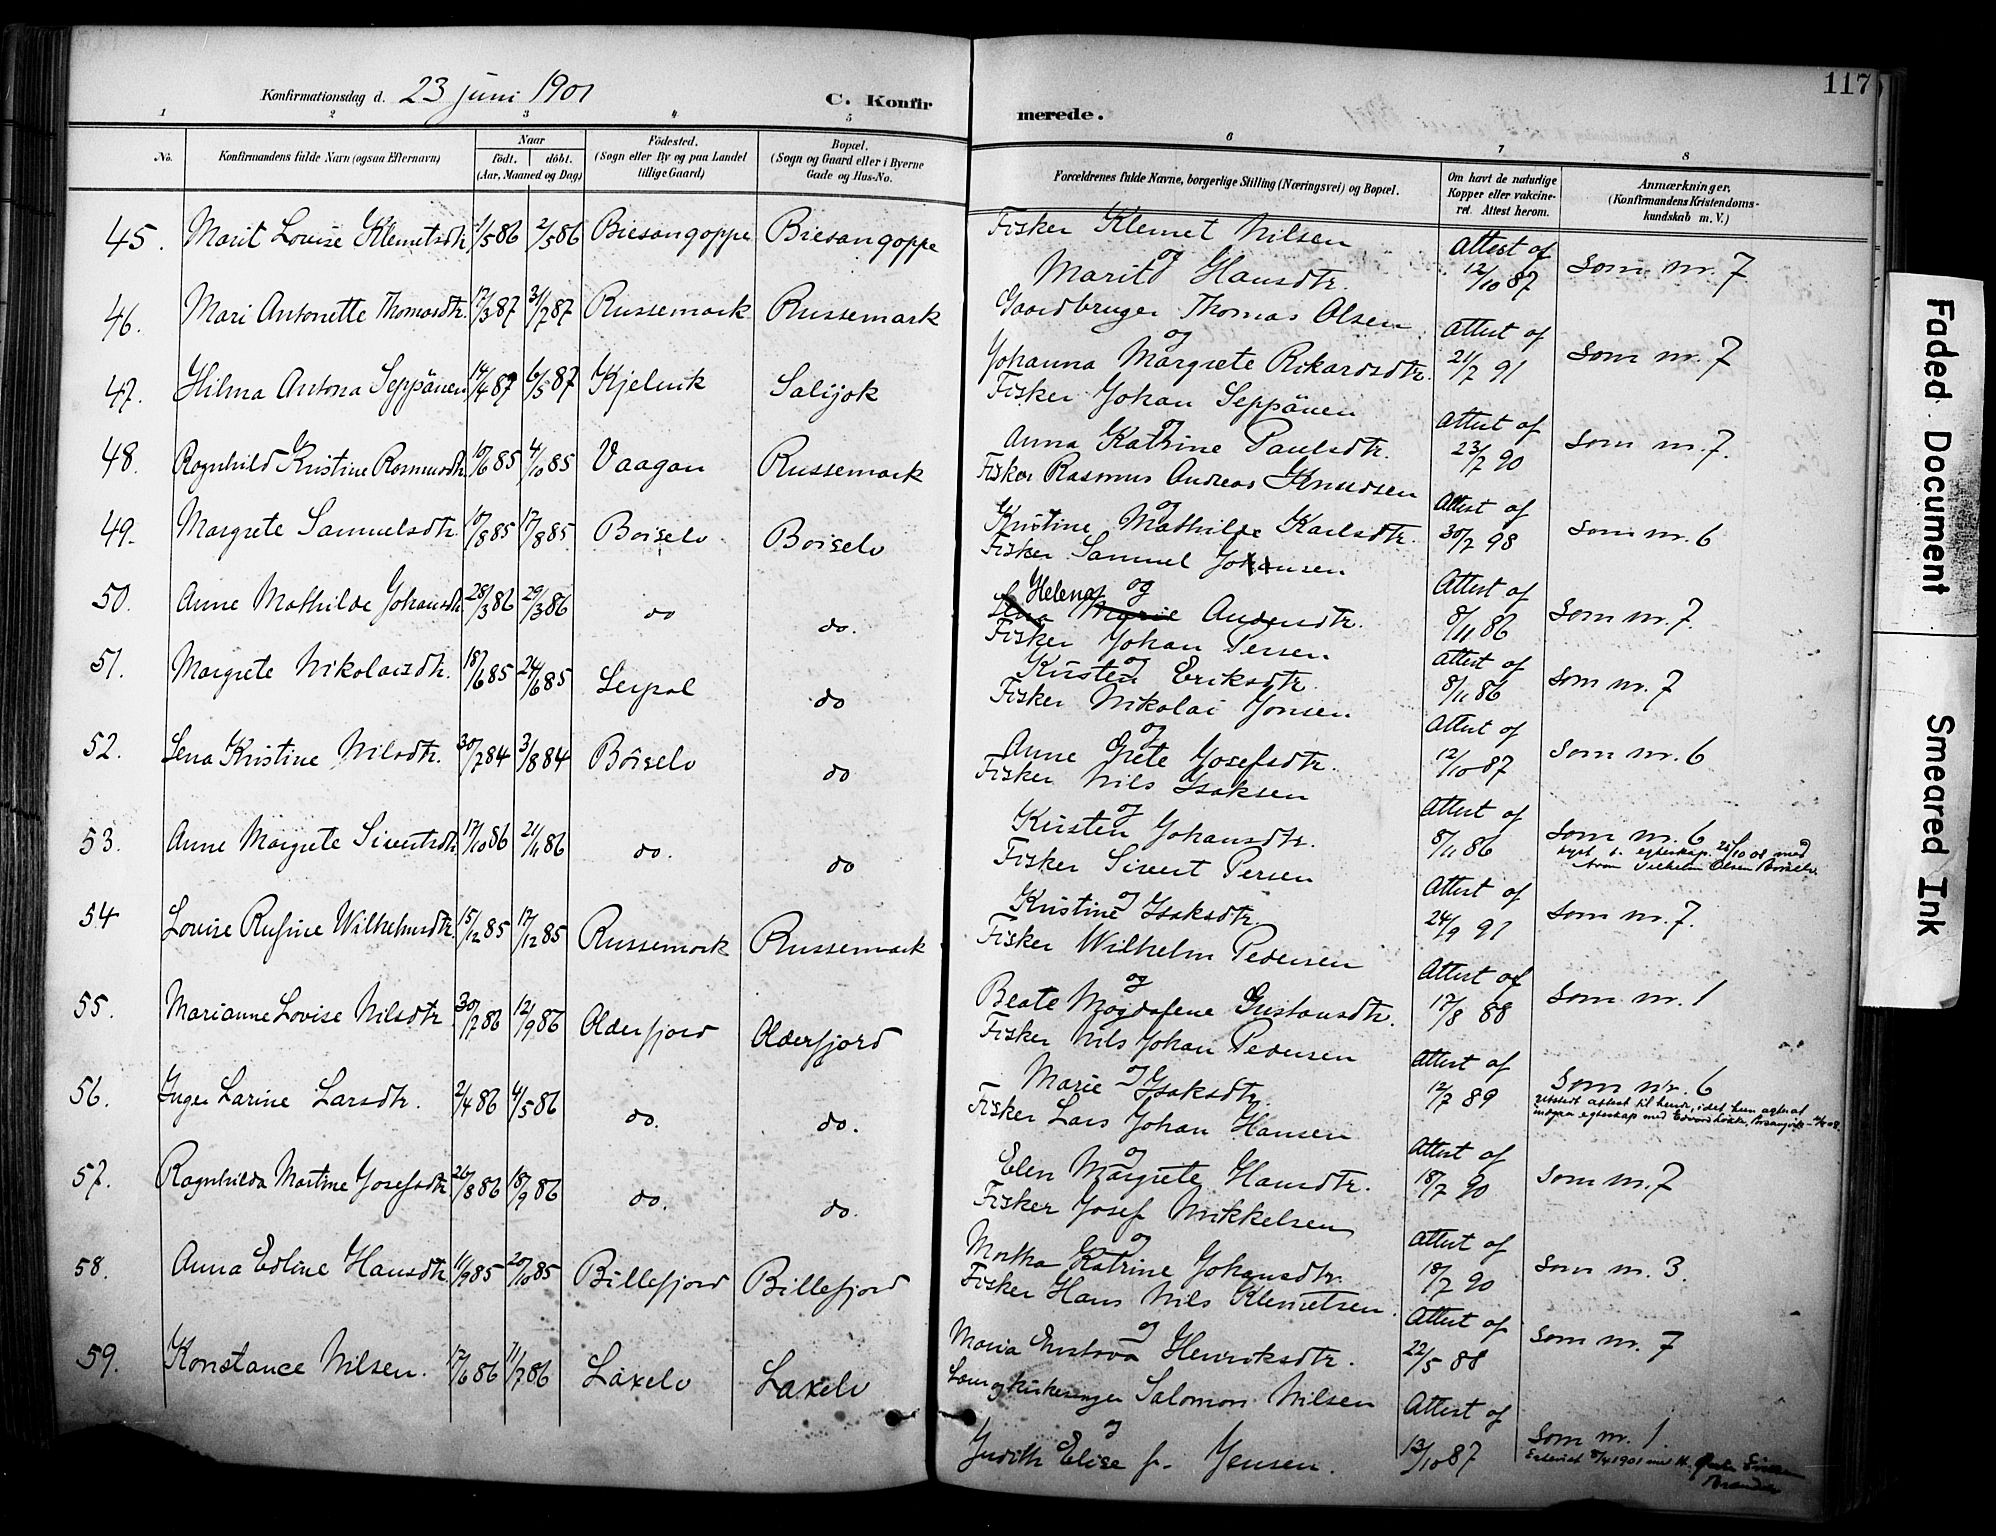 Konfirmationsdag d. 23 juni 1901
C. Konfirmerede.
117
1 2 3 4 5 6 7 8
No.
Konfirmandens fulde Navn (ogsaa Efternavn)
Naar
födt. döbt.
(Aar, Maaned og Dag)
Födested.
(Sogn eller By og paa Landet
tillige Gaard)
Bopæl.
(Sogn og Gaard eller i Byerne
Gade og Hus-No.
Forældrenes fulde Navne, borgerlige Stilling (Næringsvei) og Bopæl.
Om havt de naturlige
Kopper eller vakcine-
ret. Attest herom.
Anmærkninger.
(Konfirmandens Kristendoms-
kundskab m. V.)
45. Marit Lovise Klemetsdtr 1/5 86 2/5 86 Biesangoppe Biesangoppe
Fisker Klemet Nilsen
og
Marit Hansdtr.
Attest af
12/10 87
Som nr. 7
46. Mari Antonette Thomasdtr. 17/3 87 31/7 87 Russemark Russemark
Gaardbruger Thomas Olsen
og
Johanna Margrete Rikardsdtr.
Attest af
21/7 91
Som nr. 7
47. Hilma Antona Seppänen 14/4 87 6/5 87 Kjelvik Salijok
Fisker Johan Seppänen
og
Anna Katrine Paulsdtr.
Attest af
23/7 90
Som nr. 7.
48. Ragnhild Kristine Rasmusdtr 10/6 85 4/10 85 Vaagan Russemark
Fisker Rasmus Andreas Knudsen
og
Kristine Mathilde Karlsdtr.
Attest af
30/7 98
Som nr. 6
49. Margrete Samuelsdtr. 10/8 85 17/8 85 Börselv Börselv
Fisker Samuel Johansen
Helena og
Andersdtr.
Attest af
8/11 86
Som nr. 7.
50. Anne Mathilde Johansdtr 28/3 86 29/3 86 do do.
Fisker Johan Persen
og
Kristen Eriksdtr.
Attest af
8/11 86
Som nr. 7
51. Margrete Nikolaisdtr. 18/6 85 24/6 85 Leirpol do
Fisker Nikolai Jonsen
og
Anne Grete Josefsdtr.
Attest af
12/10 87
Som nr. 6
52. Lena Kristine Nilsdtr. 30/7 84 3/8 84 Börselv do
Fisker Nils Isaksen
og
Kristen Johansdtr.
Attest af
8/11 86
Som nr. 6
53. Anne Margrete Sivertsdtr. 17/10 86 21/11 86 do. do
Fisker Sivert Persen
og
Kristine Isaksdtr.
Attest af
24/9 91
Som nr. 7.
54 Lovise Rufine Wilhelmsdtr. 15/12 85 17/12 85 Russemark Russemark
Fisker Wilhelm Pedersen
og
Beate Magdalene Gustavsdtr.
Attest af
17/8 88
Som nr. 1
55. Marianne Lovise Nilsdtr. 30/7 86 12/9 86 Olderfjord Olderfjord
Fisker Nils Johan Pedersen
og
Marie Isaksdtr.
Attest af
12/7 89
Som nr. 6
56. Inger Larine Larsdtr. 2/4 86 4/5 86 do. do.
Fisker Lars Johan Hansen
og
Elen Margrete Hansdtr.
Attest af
18/7 90
Som nr. 7
57. Ragnhilda Martine Josefsdtr 26/8 86 18/9 86 do. do.
Fisker Josef Mikkelsen
og
Martha Katrine Johansdtr.
Attest af
18/7 90
Som nr. 3.
58. Anna Edline Hansdtr. 11/9 85 20/10 85 Billefjord Billefjord
Fisker Hans Nils Klemetsen.
og
Maria Gustava Henriksdtr.
Attest af
22/5 88
Som nr. 7
59. Konstance Nilsen. 17/6 86 11/7 86 Laxelv Laxelv
Salomon Nilsen
og
Judith Elise f. Jensen.
Attest af
13/10 87
Som nr. 1.
Faded Document
Smeared Ink